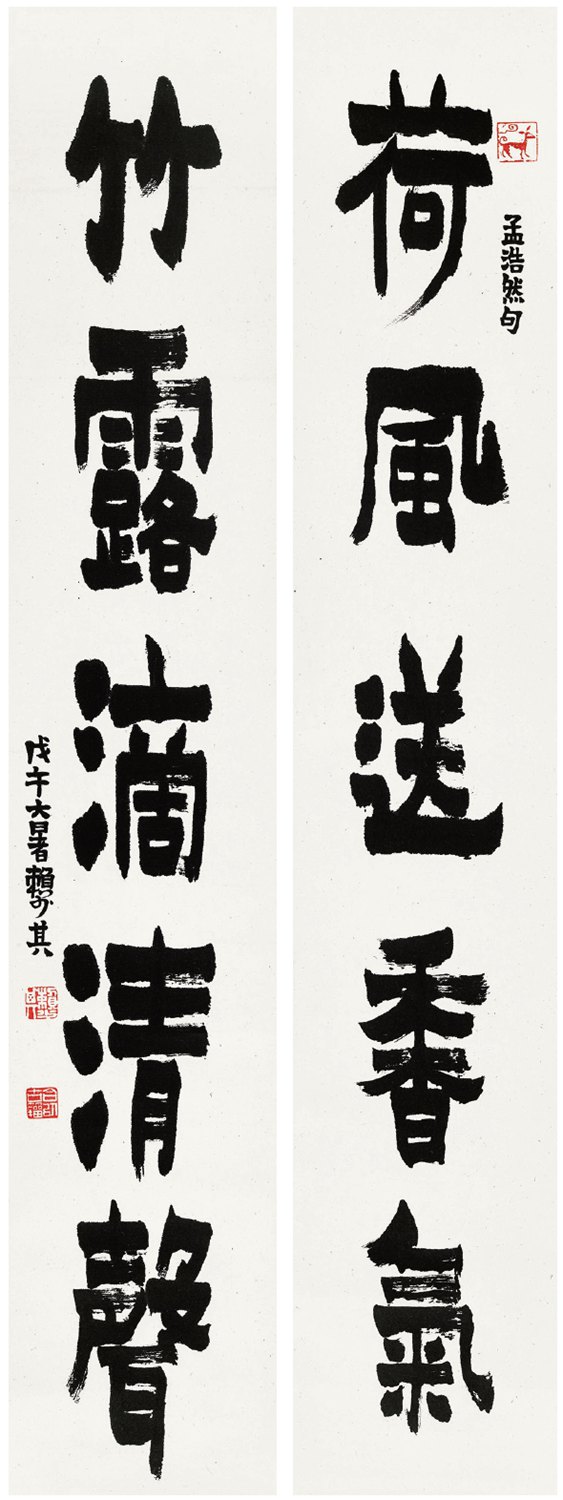 荷風送香氣
孟浩然句
竹露滴清聲
戊午大暑賴少其